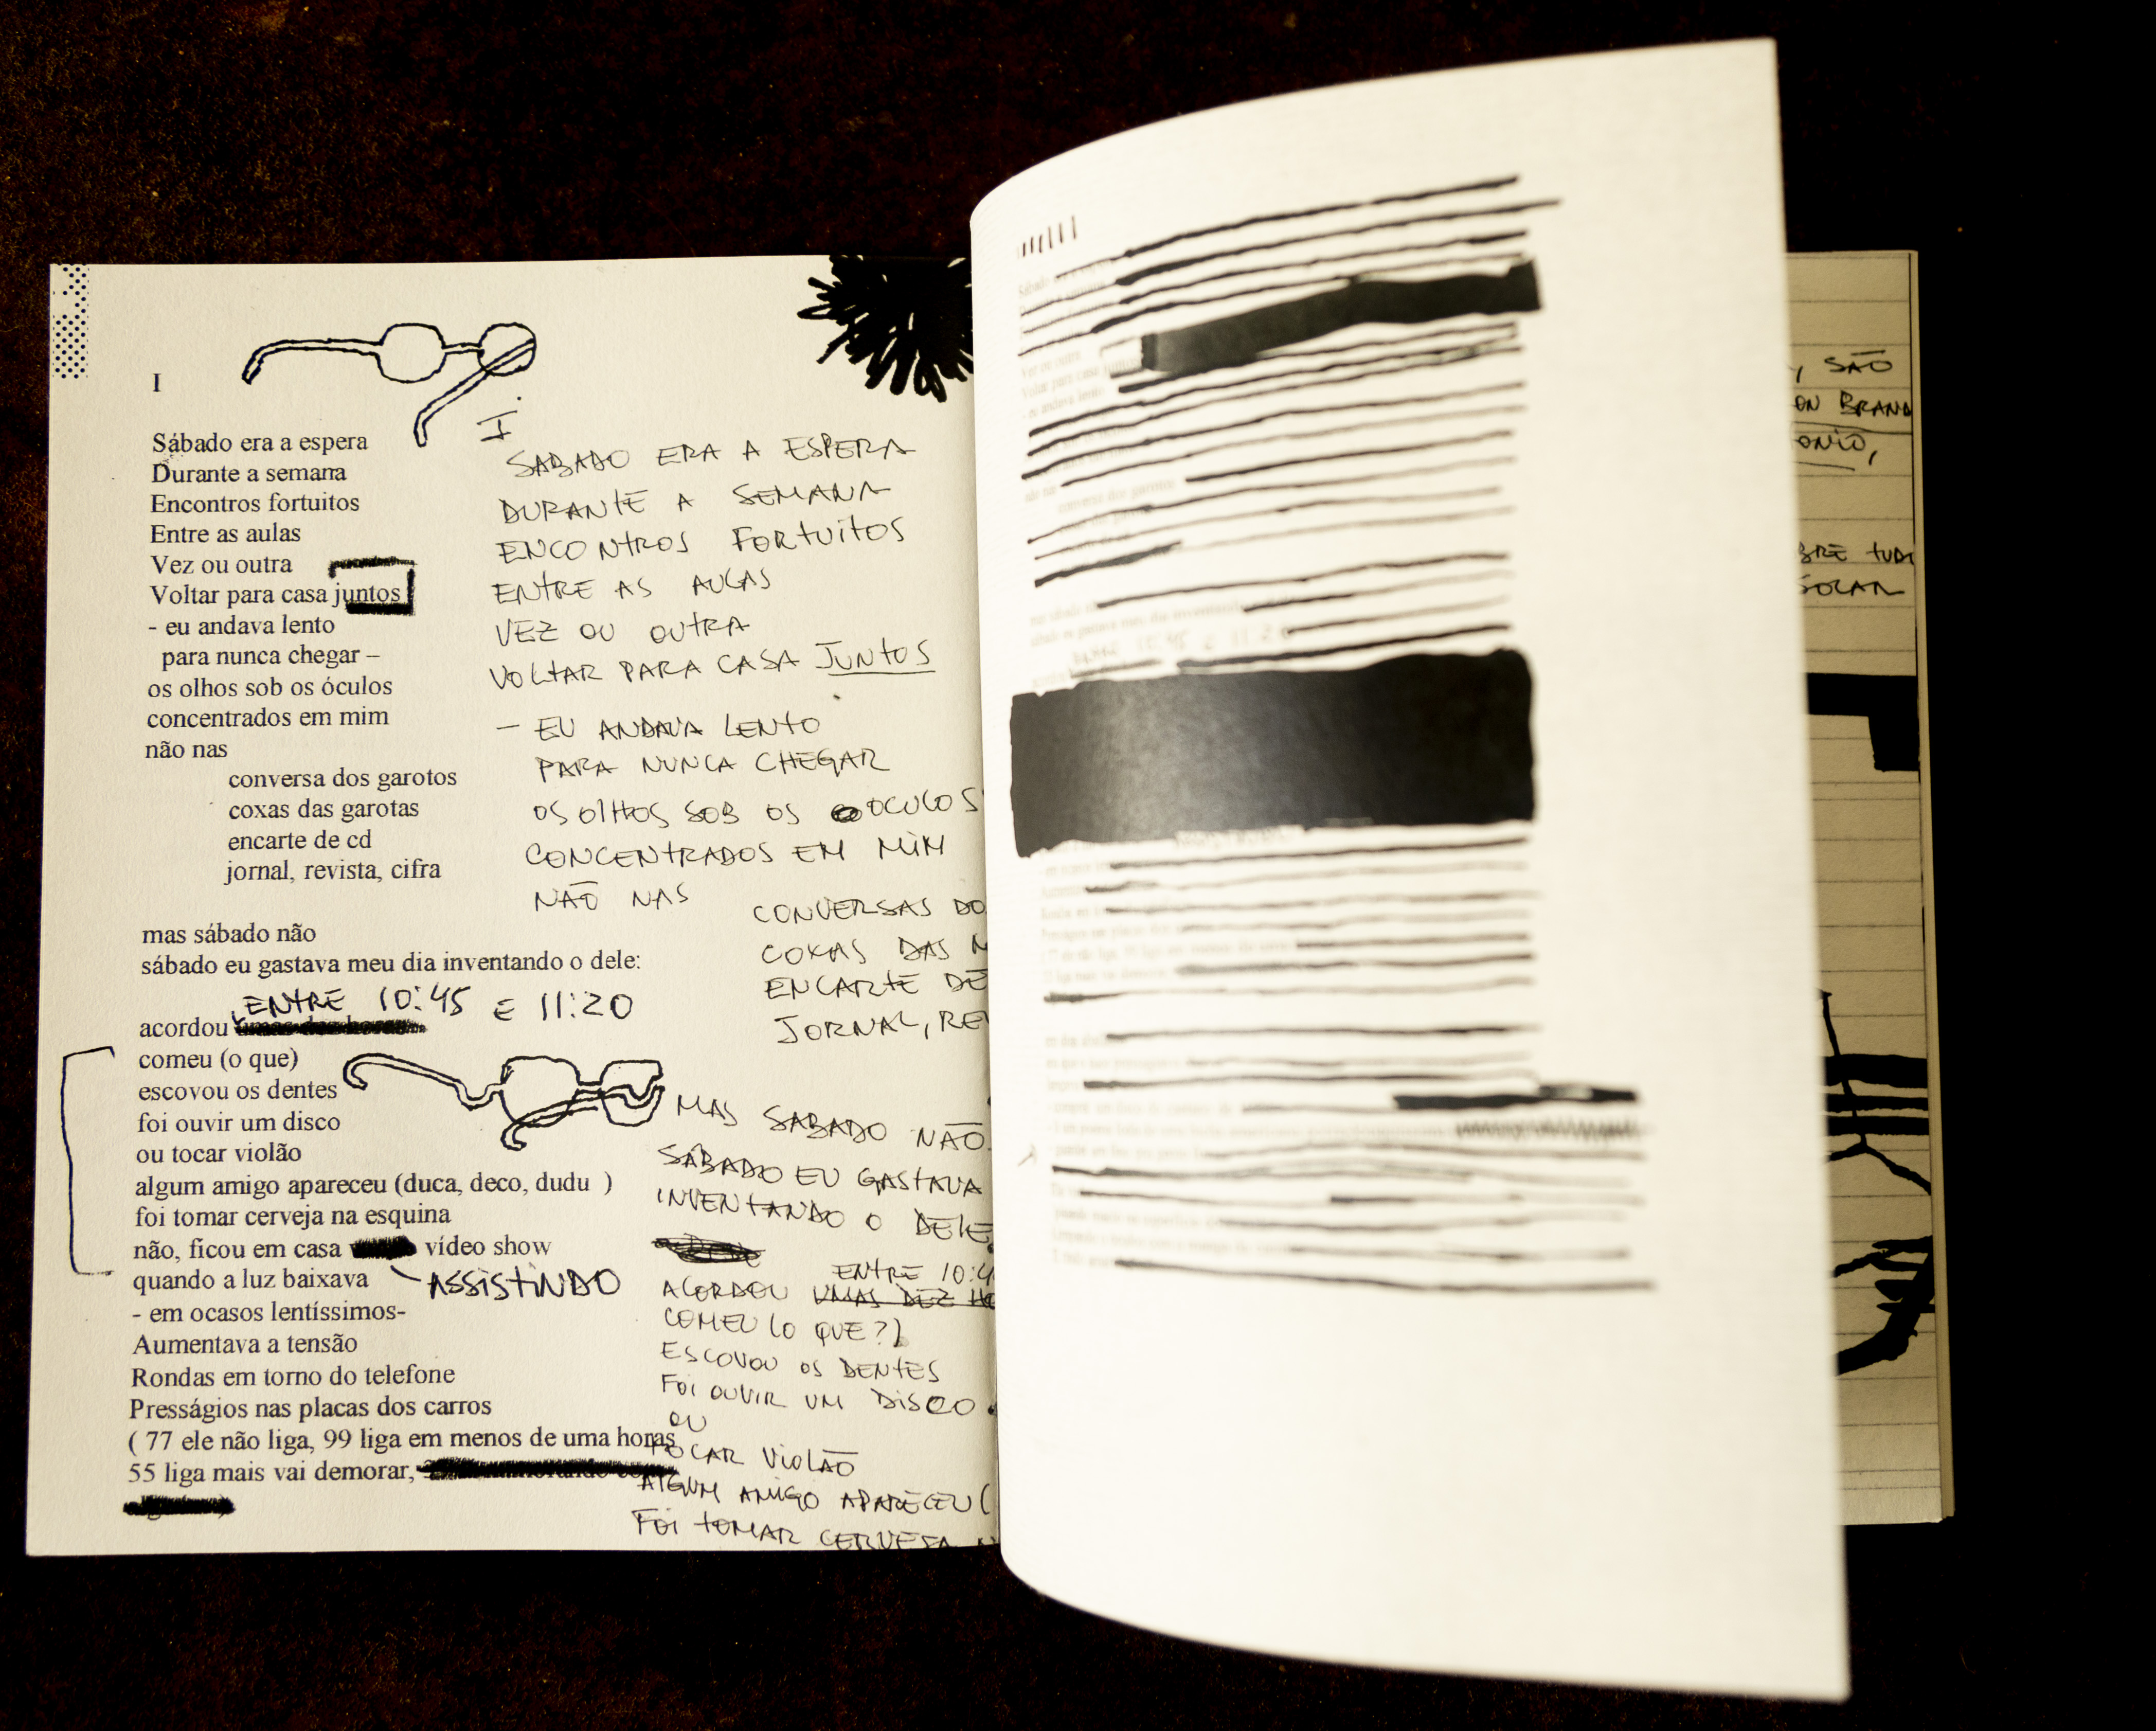 I
Sábado era a espera
Durante a semana
Encontros fortuitos
Entre as aulas
Vez ou outra
Voltar para casa juntos
- eu andava lento
para nunca chegar –
os olhos sob os óculos
concentrados em mim
não nas
conversa dos garotos
coxas das garotas
encarte de cd
jornal, revista, cifra
mas sábado não
sábado eu gastava meu dia inventando o dele:
ENTRE 10:45 E 11:20
acordou
comeu (o que)
escovou os dentes
foi ouvir um disco
ou tocar violão
algum amigo apareceu (duca, deco, dudu )
foi tomar cerveja na esquina
não, ficou em casa vídeo show
ASSISTINDO
quando a luz baixava
- em ocasos lentíssimos-
Aumentava a tensão
Rondas em torno do telefone
Presságios nas placas dos carros
( 77 ele não liga, 99 liga em menos de uma horas
55 liga mais vai demorar,
I.
SABADO ERA A ESPERA
DURANTE A SEMANA
ENCONTROS FORTUITOS
ENTRE AS AULAS
VEZ OU OUTRA
VOLTAR PARA CASA JUNTOS
– EU ANDAVA LENTO
PARA NUNCA CHEGAR
OS OLHOS SOB OS OCULOS
CONCENTRADOS EM MIM
NÃO NAS
CONVERSAS DO
COXAS DAS
ENCARTE DE
JORNAL, RE
MAS SABADO NÃO
SÁBADO EU GASTAVA
INVENTANDO O DELE
ENTRE 10:4
ACORDOU UMAS DEZ HO
COMEU (O QUE?)
ESCOVOU OS DENTES
FOI OUVIR UM DISCO
OU
TOCAR VIOLÃO
ALGUM AMIGO APARECEU (
FOI TOMAR CERVEJA
, SÃO
ON BRAND
ONIO,
BRE TUD
SOLAR